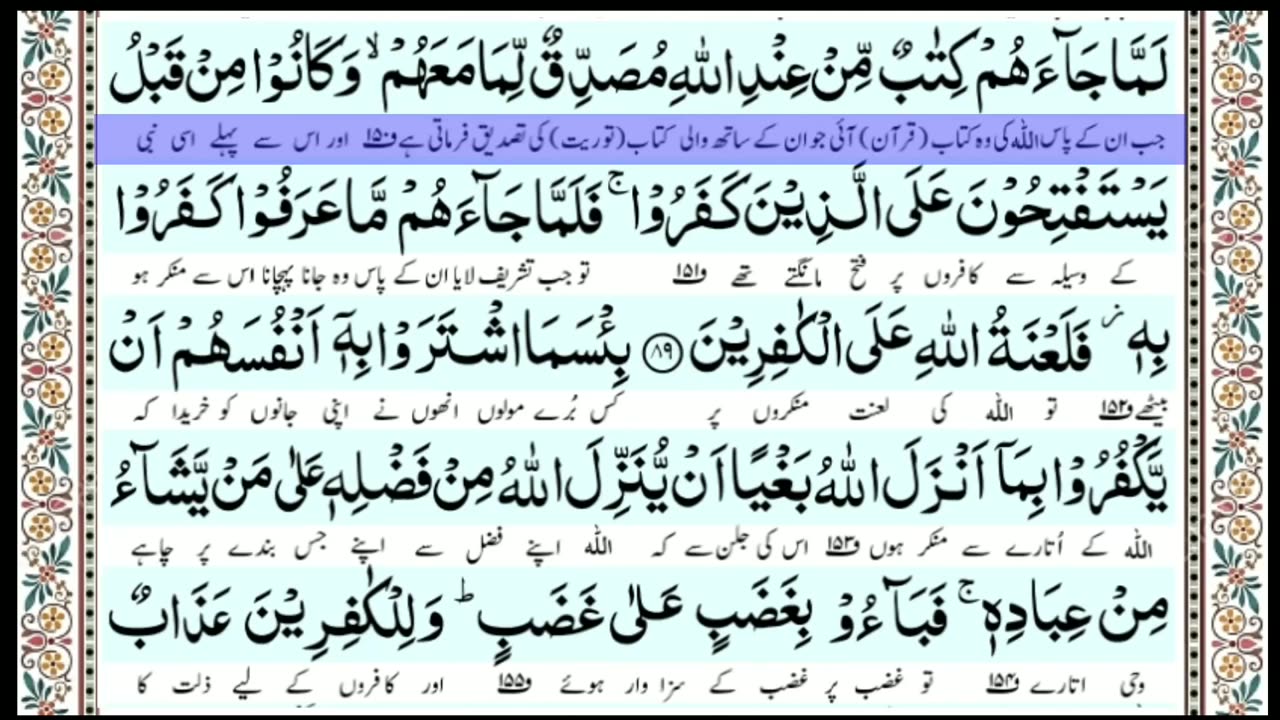 لَمَّا جَآءَهُمْ كِتٰبٌ مِّنْ عِنْدِ اللّٰهِ مُصَدِّقٌ لِّمَا مَعَهُمْ ۙ وَكَانُوْا مِنْ قَبْلُ
جب ان کے پاس اللہ کی وہ کتاب (قرآن) آئی جو ان کے ساتھ والی کتاب (توریت) کی تصدیق فرماتی ہے و۱۵۰ اور اس سے پہلے اسی نبی
يَسْتَفْتِحُوْنَ عَلَى الَّذِيْنَ كَفَرُوْا ۚ فَلَمَّا جَآءَهُمْ مَّا عَرَفُوْا كَفَرُوْا
کے وسیلہ سے کافروں پر فتح مانگتے تھے و۱۵۱ تو جب تشریف لایا ان کے پاس وہ جانا پہچانا اس سے منکر ہو
بِهٖ ز فَلَعْنَةُ اللّٰهِ عَلَى الْكٰفِرِيْنَ ۸۹ بِئْسَمَا اشْتَرَوْا بِهٖٓ اَنْفُسَهُمْ اَنْ
بیٹھے و۱۵۲ تو اللہ کی لعنت منکروں پر کس بُرے مولوں انھوں نے اپنی جانوں کو خریدا کہ
يَّكْفُرُوْا بِمَآ اَنْزَلَ اللّٰهُ بَغْيًا اَنْ يُّنَزِّلَ اللّٰهُ مِنْ فَضْلِهٖ عَلٰى مَنْ يَّشَآءُ
اللہ کے اُتارے سے منکر ہوں و۱۵۳ اس کی جلن سے کہ اللہ اپنے فضل سے اپنے جس بندے پر چاہے
مِنْ عِبَادِهٖ ۚ فَبَآءُوْ بِغَضَبٍ عَلٰى غَضَبٍ ؕ وَلِلْكٰفِرِيْنَ عَذَابٌ
وحی اتارے و۱۵۴ تو غضب پر غضب کے سزا وار ہوئے و۱۵۵ اور کافروں کے لیے ذلت کا